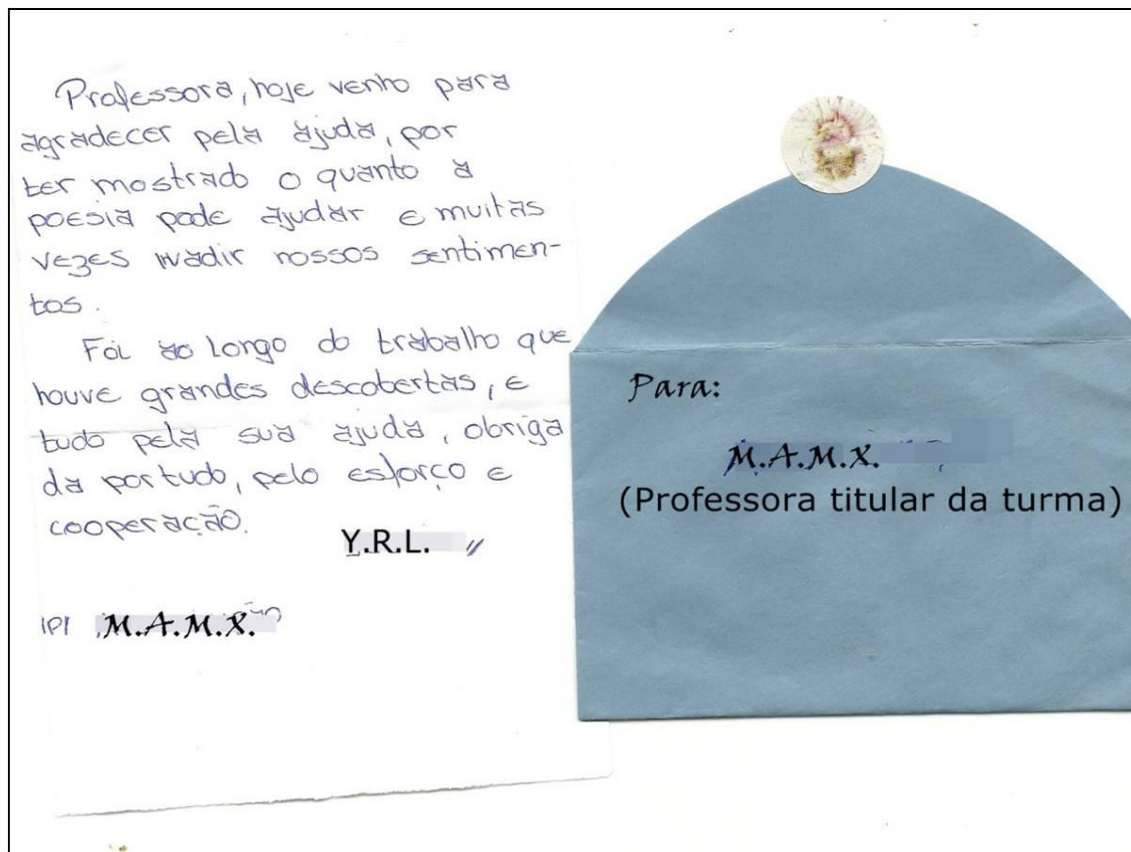 Professora, hoje venho para
agradecer pela ajuda, por
ter mostrado o quanto a
poesia pode ajudar e muitas
vezes invadir nossos sentimen-
tos.
Foi ao longo do trabalho que
houve grandes descobertas, e
tudo pela sua ajuda, obriga
da por tudo, pelo esforço e
cooperação.
Y.R.L.
M.A.M.X.
Para:
M.A.M.X.
(Professora titular da turma)